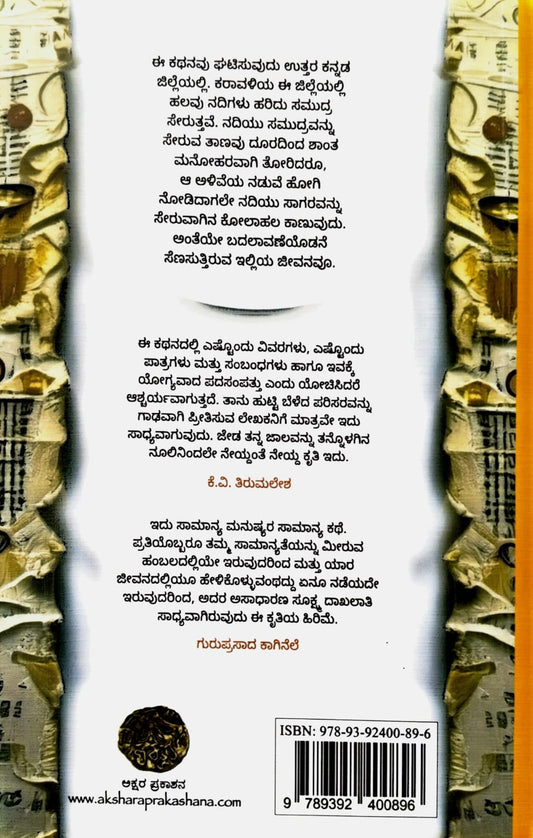 ಈ ಕಥನವು ಘಟಿಸುವುದು ಉತ್ತರ ಕನ್ನಡ
ಜಿಲ್ಲೆಯಲ್ಲಿ. ಕರಾವಳಿಯ ಈ ಜಿಲ್ಲೆಯಲ್ಲಿ
ಹಲವು ನದಿಗಳು ಹರಿದು ಸಮುದ್ರ
ಸೇರುತ್ತವೆ. ನದಿಯು ಸಮುದ್ರವನ್ನು
ಸೇರುವ ತಾಣವು ದೂರದಿಂದ ಶಾಂತ
ಮನೋಹರವಾಗಿ ತೋರಿದರೂ,
ಆ ಅಳಿವೆಯ ನಡುವೆ ಹೋಗಿ
ನೋಡಿದಾಗಲೇ ನದಿಯು ಸಾಗರವನ್ನು
ಸೇರುವಾಗಿನ ಕೋಲಾಹಲ ಕಾಣುವುದು.
ಅಂತೆಯೇ ಬದಲಾವಣೆಯೊಡನೆ
ಸೆಣಸುತ್ತಿರುವ ಇಲ್ಲಿಯ ಜೀವನವೂ.
ಈ ಕಥನದಲ್ಲಿ ಎಷ್ಟೊಂದು ವಿವರಗಳು, ಎಷ್ಟೊಂದು
ಪಾತ್ರಗಳು ಮತ್ತು ಸಂಬಂಧಗಳು ಹಾಗೂ ಇವಕ್ಕೆ
ಯೋಗ್ಯವಾದ ಪದಸಂಪತ್ತು ಎಂದು ಯೋಚಿಸಿದರೆ
ಆಶ್ಚರ್ಯವಾಗುತ್ತದೆ. ತಾನು ಹುಟ್ಟಿ ಬೆಳೆದ ಪರಿಸರವನ್ನು
ಗಾಢವಾಗಿ ಪ್ರೀತಿಸುವ ಲೇಖಕನಿಗೆ ಮಾತ್ರವೇ ಇದು
ಸಾಧ್ಯವಾಗುವುದು. ಜೇಡ ತನ್ನ ಜಾಲವನ್ನು ತನ್ನೊಳಗಿನ
ನೂಲಿನಿಂದಲೇ ನೇಯ್ದಂತೆ ನೇಯ್ದ ಕೃತಿ ಇದು.
ಕೆ.ವಿ. ತಿರುಮಲೇಶ
ಇದು ಸಾಮಾನ್ಯ ಮನುಷ್ಯರ ಸಾಮಾನ್ಯ ಕಥೆ.
ಪ್ರತಿಯೊಬ್ಬರೂ ತಮ್ಮ ಸಾಮಾನ್ಯತೆಯನ್ನು ಮೀರುವ
ಹಂಬಲದಲ್ಲಿಯೇ ಇರುವುದರಿಂದ ಮತ್ತು ಯಾರ
ಜೀವನದಲ್ಲಿಯೂ ಹೇಳಿಕೊಳ್ಳುವಂಥದ್ದು ಏನೂ ನಡೆಯದೇ
ಇರುವುದರಿಂದ, ಅದರ ಅಸಾಧಾರಣ ಸೂಕ್ಷ್ಮ ದಾಖಲಾತಿ
ಸಾಧ್ಯವಾಗಿರುವುದು ಈ ಕೃತಿಯ ಹಿರಿಮೆ.
ಗುರುಪ್ರಸಾದ ಕಾಗಿನೆಲೆ
ಅಕ್ಷರ ಪ್ರಕಾಶನ
www.aksharaprakashana.com
ISBN: 978-93-92400-89-6
9 789392 400896